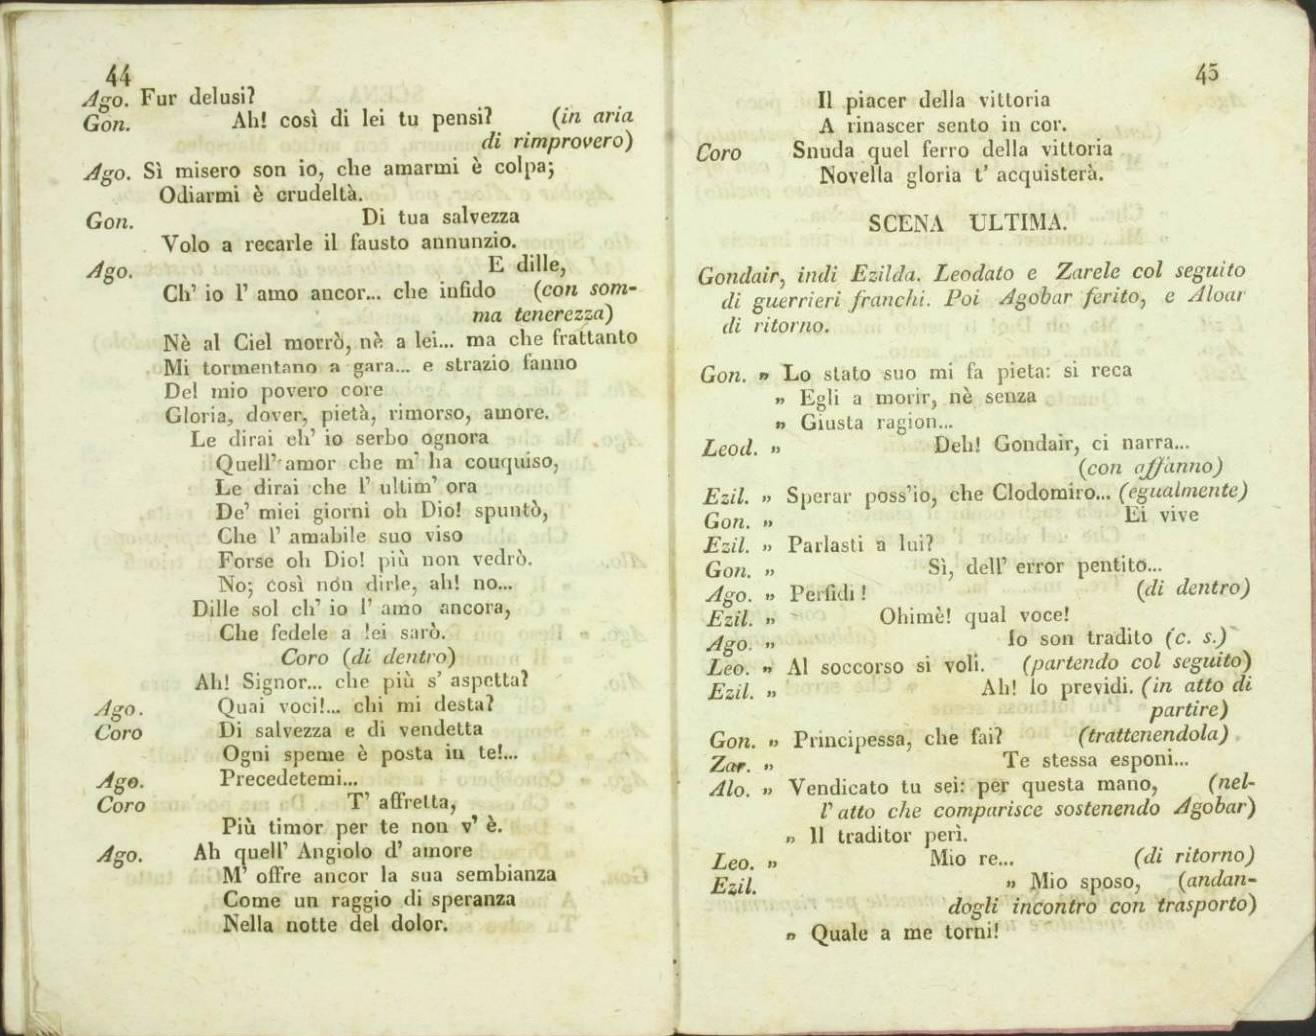 44
Ago. Fur delusi?
Gon. Ah! così di lei tu pensi? (in aria
di rimprovero)
Ago. Sì misero son io, che amarmi è colpa;
Odiarmi è crudeltà.
Gon. Di tua salvezza
Volo a recarle il fausto annunzio.
Ago. E dille,
Ch' io l' amo ancor... che infido (con som-
ma tenerezza)
Nè al Ciel morrò, nè a lei... ma che frattanto
Mi tormentano a gara... e strazio fanno
Del mio povero core
Gloria, dover, pietà, rimorso, amore.
Le dirai ch' io serbo ognora
Quell' amor che m' ha couquiso,
Le dirai che l' ultim' ora
De' miei giorni oh Dio! spuntò,
Che l' amabile suo viso
Forse oh Dio! più non vedrò.
No; così non dirle, ah! no...
Dille sol ch' io l' amo ancora,
Che fedele a lei sarò.
Coro (di dentro)
Ah! Signor... che più s' aspetta?
Ago. Quai voci!... chi mi desta?
Coro Di salvezza e di vendetta
Ogni speme è posta in te!...
Ago. Precedetemi...
Coro T' affretta,
Più timor per te non v' è.
Ago. Ah quell' Angiolo d' amore
M' offre ancor la sua sembianza
Come un raggio di speranza
Nella notte del dolor.
45
Il piacer della vittoria
A rinascer sento in cor.
Coro Snuda quel ferro della vittoria
Novella gloria t' acquisterà.
SCENA ULTIMA.
Gondair, indi Ezilda. Leodato e Zarele col seguito
di guerrieri franchi. Poi Agobar ferito, e Aloar
di ritorno.
Gon. „ Lo stato suo mi fa pieta: si reca
„ Egli a morir, nè senza
„ Giusta ragion...
Leod. „ Deh! Gondair, ci narra...
(con affanno)
Ezil. „ Sperar poss'io, che Clodomiro... (egualmente)
Gon. „ Ei vive
Ezil. „ Parlasti a lui?
Gon. „ Sì, dell' error pentito...
Ago. „ Perfidi! (di dentro)
Ezil. „ Ohimè! qual voce!
Ago. „ Io son tradito (c. s.)
Leo. „ Al soccorso si voli. (partendo col seguito)
Ezil. „ Ah! lo previdi. (in atto di
partire)
Gon. „ Principessa, che fai? (trattenendola)
Zar. „ Te stessa esponi...
Alo. „ Vendicato tu sei: per questa mano, (nel-
l' atto che comparisce sostenendo Agobar)
„ Il traditor perì.
Leo. „ Mio re... (di ritorno)
Ezil. „ Mio sposo, (andan-
dogli incontro con trasporto)
„ Quale a me torni!